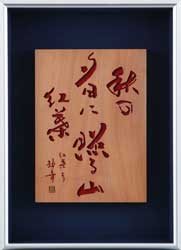 秋の
夕日に照る山
紅葉